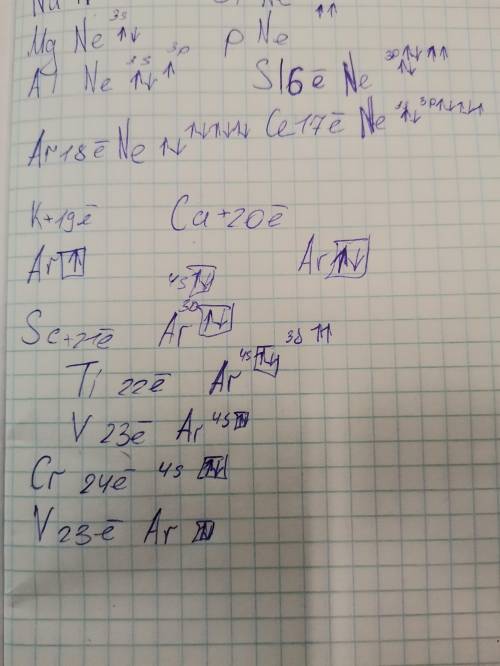 Na
Mg Ne 3s ↑↓ P Ne ↑↑
Al Ne 3s ↑↓ 3p ↑ S 16ē Ne 3p ↑↓ ↑↑ ↑↓
Ar 18ē Ne ↑↓ ↑↓↑↓↑↓ Cl 17ē Ne 3s ↑↓ 3p ↑↓↑↓↑
K+19ē Ca+20ē
Ar ↑ Ar ↑↓
4s ↑↓
Sc+21ē Ar 3D ↑↓
Ti 22ē Ar 4s ↑↓ 3d ↑↑
V 23ē Ar 4s
Cr 24ē 4s ↑↓
V 23ē Ar